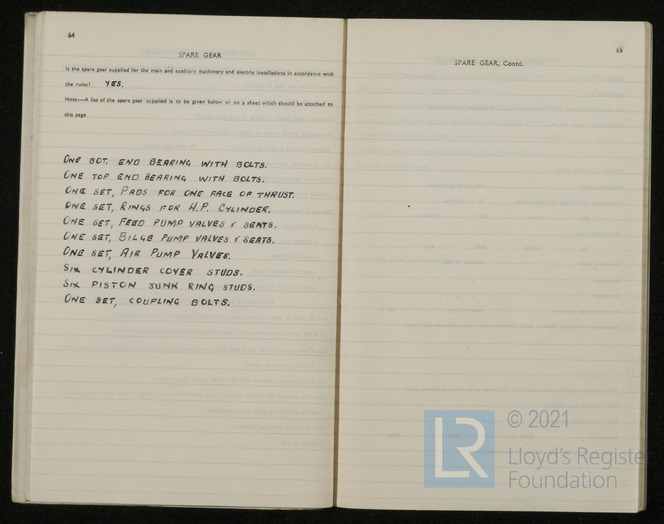 64
SPARE GEAR
Is the spare gear supplied for the main and auxiliary machinery and electric installations in accordance with
the rules? YES.
Note:—A list of the spare gear supplied is to be given below or on a sheet which should be attached to
this page.
ONE BOT. END BEARING WITH BOLTS.
ONE TOP END BEARING WITH BOLTS.
ONE SET, PADS FOR ONE FACE OF THRUST.
ONE SET, RINGS FOR H.P. CYLINDER.
ONE SET, FEED PUMP VALVES & SEATS.
ONE SET, BILGE PUMP VALVES & SEATS.
ONE SET, AIR PUMP VALVES.
SIX CYLINDER COVER STUDS.
SIX PISTON JUNK RING STUDS.
ONE SET, COUPLING BOLTS.
65
SPARE GEAR, Contd.
LR
© 2021
Lloyd's Register
Foundation